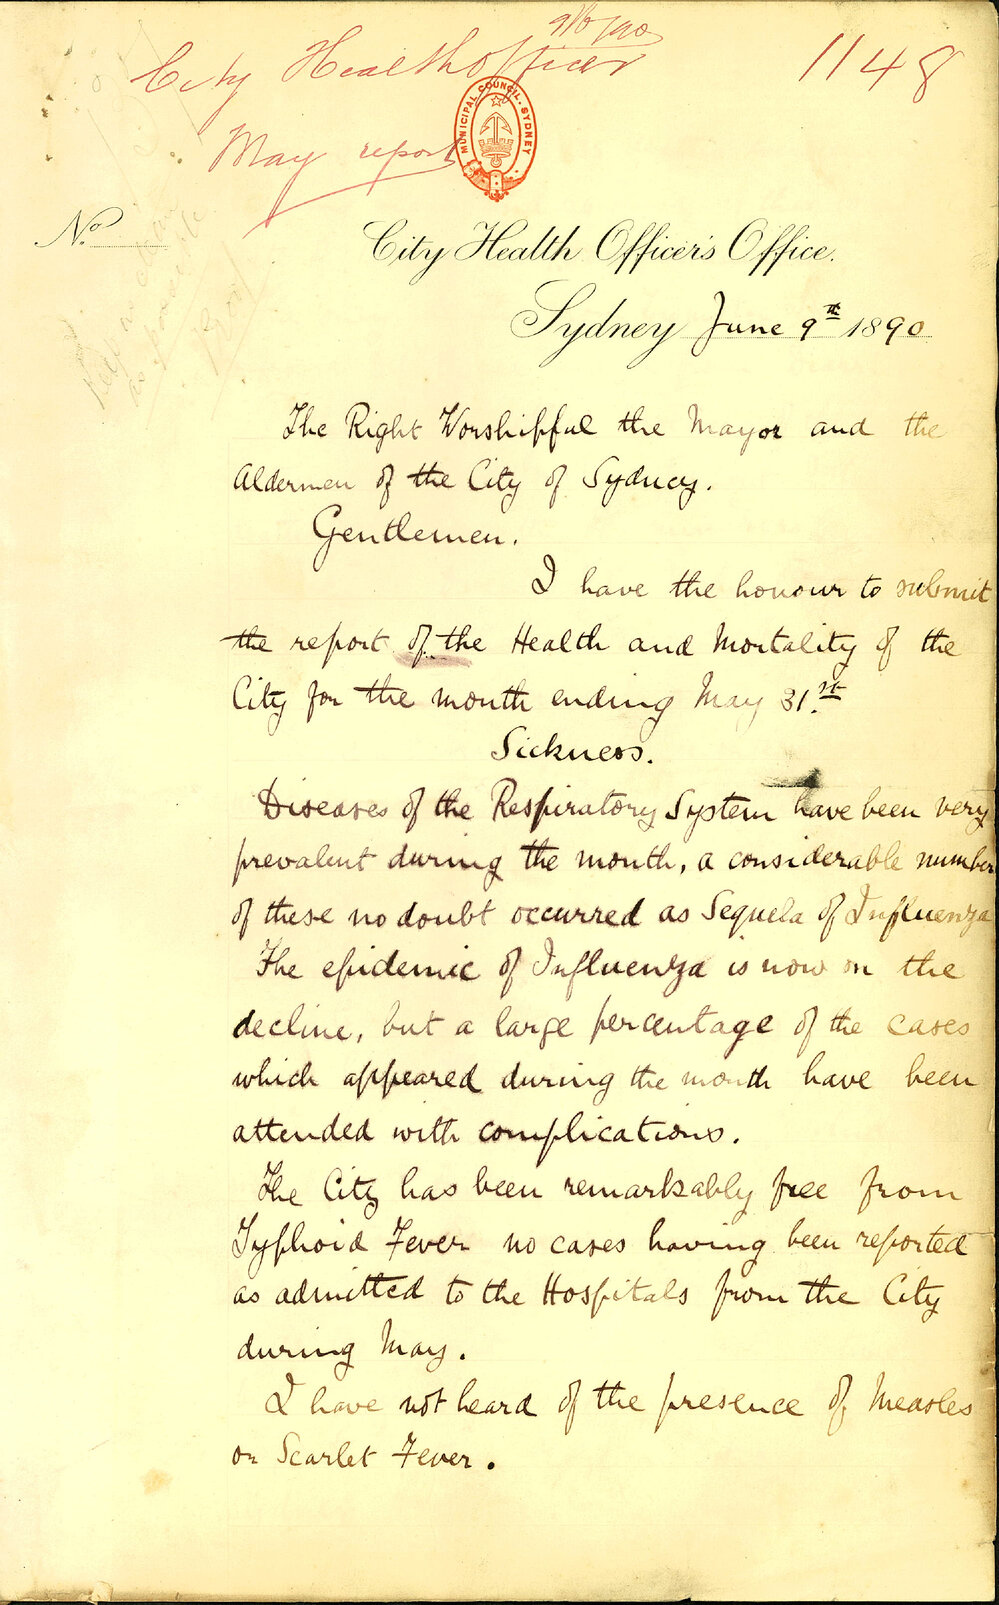 9/6/90
City Health Officer
1148
May report
MUNICIPAL COUNCIL · SYDNEY
No
City Health Officer's Office.
Sydney June 9th 1890
The Right Worshipful the Mayor and the
Aldermen of the City of Sydney.
Gentlemen.
I have the honour to submit
the report of the Health and Mortality of the
City for the month ending May 31st.
Sickness.
Diseases of the Respiratory System have been very
prevalent during the month, a considerable number
of these no doubt occurred as Sequela of Influenza
The epidemic of Influenza is now on the
decline, but a large percentage of the cases
which appeared during the month have been
attended with complications.
The City has been remarkably free from
Typhoid Fever no cases having been reported
as admitted to the Hospitals from the City
during May.
I have not heard of the presence of Measles
or Scarlet Fever.